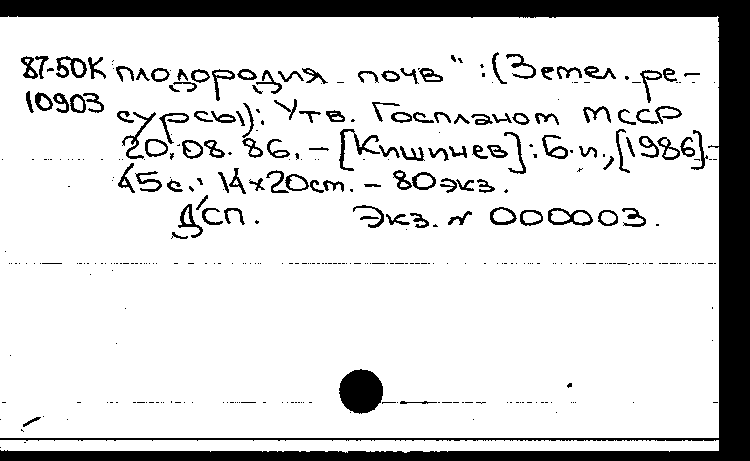 87-50К плодородия почв" : (Земел. ре-
10903 сурсы): Утв. Госпланом МССР
20.08.86. – [Кишинев]: Б.и., [1986].-
45с.; 14x20см. – 80экз.
ДСП. Экз. N 000003.